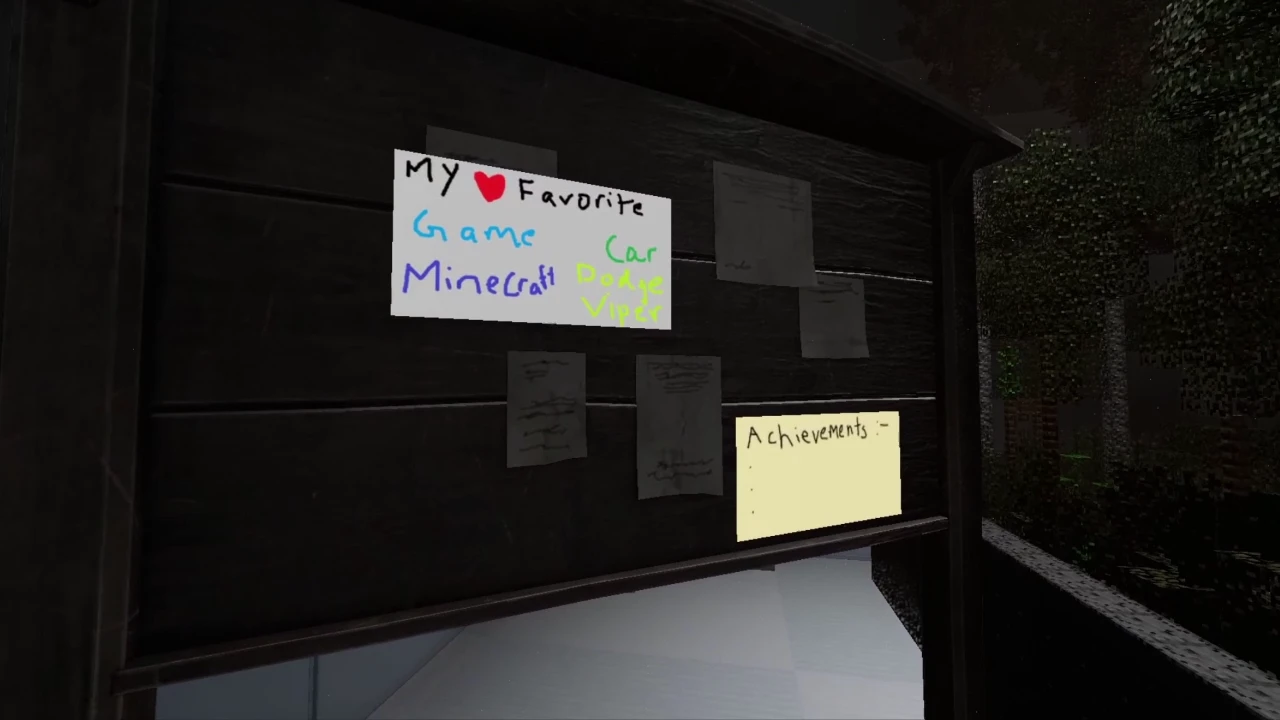 My ❤ Favorite
Game
Minecraft
Car
Dodge
Viper
Achievements :-
.
.
.